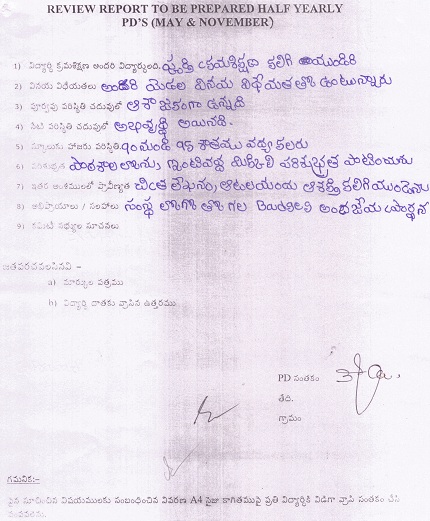 REVIEW REPORT TO BE PREPARED HALF YEARLY
PD'S (MAY & NOVEMBER)
1) విద్యార్థి క్రమశిక్షణ అందరి విద్యార్థులది. వృత్తి క్రమశిక్షణ కలిగి యుండిరి
2) వినయ విధేయతలు అందరి యెడల వినయ విధేయత తో ఉంటున్నారు
3) పూర్వపు పరిస్థితి చదువులో ఆశాజనకంగా ఉన్నది
4) నేటి పరిస్థితి చదువులో అభివృద్ధి అయినది.
5) స్కూలుకు హాజరు పరిస్థితి. 90 నుండి 95 శాతము వచ్చు కలరు
6) పరిశుభ్రత పాఠశాల లోను, ఇంటివద్ద మిక్కిలి పరిశుభ్రత పాటించును
7) ఇతర అంశములలో ప్రావీణ్యత చిత్ర లేఖనం, ఆటలయందు ఆశక్తి కలిగియుండెను
8) అభిప్రాయాలు / సలహాలు సంస్థ లోగో తో గల Badges అందజేయ ప్రార్థన
9) కమిటీ సభ్యుల సూచనలు
జతపరచవలసినవి :-
a) మార్కుల పత్రము
b) విద్యార్థి దాతకు వ్రాసిన ఉత్తరము
PD సంతకం
తేది.
గ్రామం
గమనిక:-
పైన సూచించిన విషయములకు సంబంధించిన వివరణ A4 సైజు కాగితముపై ప్రతి విద్యార్థికి విడిగా వ్రాసి సంతకం చేసి
పంపవలెను.